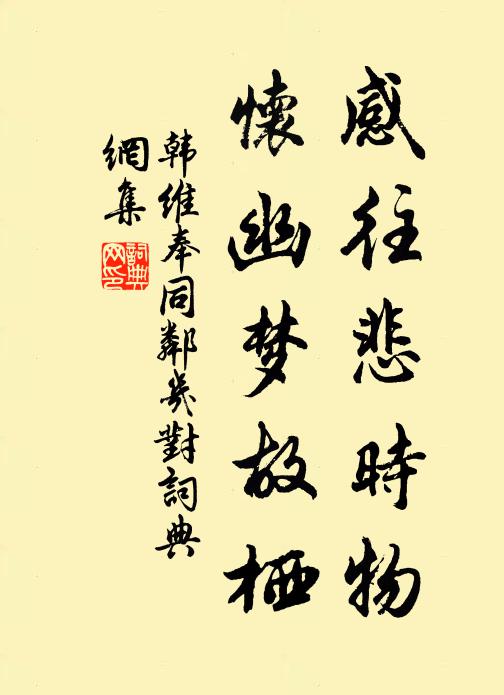 感往悲時物
懷幽梦故栖
韩維奉同鄰幾對詞典
網集
詞典
网印